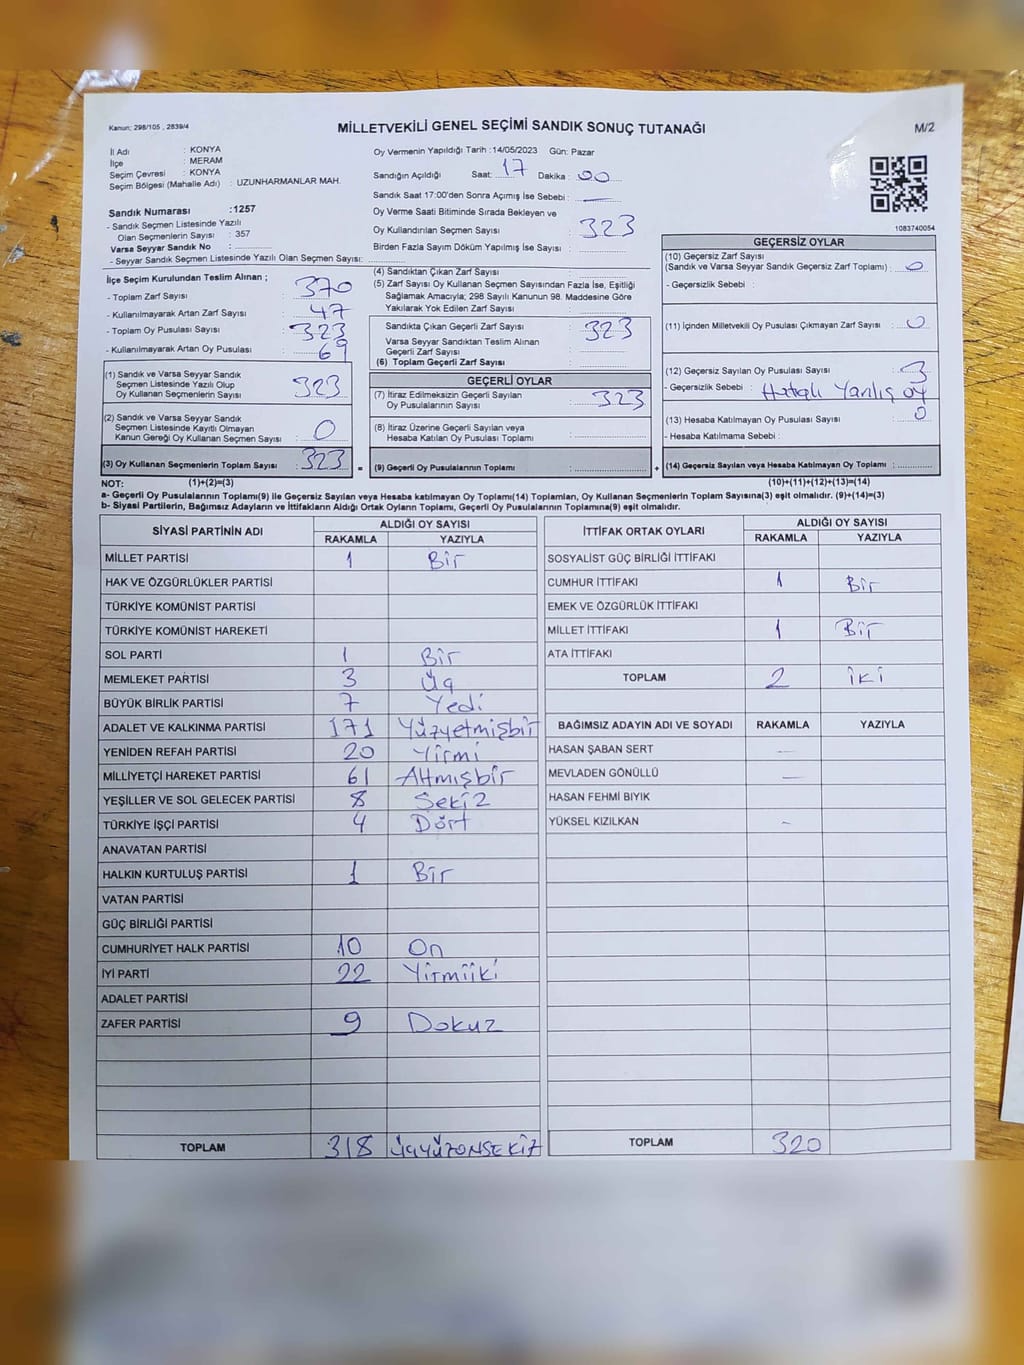 Kanun: 298/105 , 2839/4
MİLLETVEKİLİ GENEL SEÇİMİ SANDIK SONUÇ TUTANAĞI
M/2
İl Adı : KONYA
İlçe : MERAM
Seçim Çevresi : KONYA
Seçim Bölgesi (Mahalle Adı) : UZUNHARMANLAR MAH.
Sandık Numarası :1257
- Sandık Seçmen Listesinde Yazılı
Olan Seçmenlerin Sayısı : 357
Varsa Seyyar Sandık No :
- Seyyar Sandık Seçmen Listesinde Yazılı Olan Seçmen Sayısı:
Oy Vermenin Yapıldığı Tarih :14/05/2023 Gün: Pazar
Sandığın Açıldığı Saat: 17 Dakika : 00
Sandık Saat 17:00'den Sonra Açımış İse Sebebi :
Oy Verme Saati Bitiminde Sırada Bekleyen ve
Oy Kullandırılan Seçmen Sayısı : 323
Birden Fazla Sayım Döküm Yapılmış İse Sayısı :
1083740054
İlçe Seçim Kurulundan Teslim Alınan ;
- Toplam Zarf Sayısı : 370
- Kullanılmayarak Artan Zarf Sayısı : 47
- Toplam Oy Pusulası Sayısı : 323
- Kullanılmayarak Artan Oy Pusulası : 69
(1) Sandık ve Varsa Seyyar Sandık
Seçmen Listesinde Yazılı Olup
Oy Kullanan Seçmenlerin Sayısı : 323
(2) Sandık ve Varsa Seyyar Sandık
Seçmen Listesinde Kayıtlı Olmayan
Kanun Gereği Oy Kullanan Seçmen Sayısı : 0
(3) Oy Kullanan Seçmenlerin Toplam Sayısı : 323 =
(4) Sandıktan Çıkan Zarf Sayısı :
(5) Zarf Sayısı Oy Kullanan Seçmen Sayısından Fazla İse, Eşitliği
Sağlamak Amacıyla; 298 Sayılı Kanunun 98. Maddesine Göre
Yakılarak Yok Edilen Zarf Sayısı :
Sandıkta Çıkan Geçerli Zarf Sayısı : 323
Varsa Seyyar Sandıktan Teslim Alınan
Geçerli Zarf Sayısı :
(6) Toplam Geçerli Zarf Sayısı :
GEÇERLİ OYLAR
(7) İtiraz Edilmeksizin Geçerli Sayılan
Oy Pusulalarının Sayısı : 323
(8) İtiraz Üzerine Geçerli Sayılan veya
Hesaba Katılan Oy Pusulası Toplamı :
(9) Geçerli Oy Pusulalarının Toplamı : +
GEÇERSİZ OYLAR
(10) Geçersiz Zarf Sayısı
(Sandık ve Varsa Seyyar Sandık Geçersiz Zarf Toplamı) : 0
- Geçersizlik Sebebi :
(11) İçinden Milletvekili Oy Pusulası Çıkmayan Zarf Sayısı : 0
(12) Geçersiz Sayılan Oy Pusulası Sayısı : 3
- Geçersizlik Sebebi : Hatalı Yanlış oy
(13) Hesaba Katılmayan Oy Pusulası Sayısı : 0
- Hesaba Katılmama Sebebi :
(14) Geçersiz Sayılan veya Hesaba Katılmayan Oy Toplamı :
NOT: (1)+(2)=(3) (10)+(11)+(12)+(13)=(14)
a- Geçerli Oy Pusulalarının Toplamı(9) ile Geçersiz Sayılan veya Hesaba katılmayan Oy Toplamı(14) Toplamları, Oy Kullanan Seçmenlerin Toplam Sayısına(3) eşit olmalıdır. (9)+(14)=(3)
b- Siyasi Partilerin, Bağımsız Adayların ve İttifakların Aldığı Ortak Oyların Toplamı, Geçerli Oy Pusulalarının Toplamına(9) eşit olmalıdır.
SİYASİ PARTİNİN ADI ALDIĞI OY SAYISI
RAKAMLA YAZIYLA
MİLLET PARTİSİ 1 Bir
HAK VE ÖZGÜRLÜKLER PARTİSİ
TÜRKİYE KOMÜNİST PARTİSİ
TÜRKİYE KOMÜNİST HAREKETİ
SOL PARTİ 1 Bir
MEMLEKET PARTİSİ 3 Üç
BÜYÜK BİRLİK PARTİSİ 7 Yedi
ADALET VE KALKINMA PARTİSİ 171 Yüzyetmişbir
YENİDEN REFAH PARTİSİ 20 Yirmi
MİLLİYETÇİ HAREKET PARTİSİ 61 Altmışbir
YEŞİLLER VE SOL GELECEK PARTİSİ 8 Sekiz
TÜRKİYE İŞÇİ PARTİSİ 4 Dört
ANAVATAN PARTİSİ
HALKIN KURTULUŞ PARTİSİ 1 Bir
VATAN PARTİSİ
GÜÇ BİRLİĞİ PARTİSİ
CUMHURİYET HALK PARTİSİ 10 On
İYİ PARTİ 22 Yirmiiki
ADALET PARTİSİ
ZAFER PARTİSİ 9 Dokuz
TOPLAM 318 ÜÇYÜZONSEKİZ
İTTİFAK ORTAK OYLARI ALDIĞI OY SAYISI
RAKAMLA YAZIYLA
SOSYALİST GÜÇ BİRLİĞİ İTTİFAKI
CUMHUR İTTİFAKI 1 Bir
EMEK VE ÖZGÜRLÜK İTTİFAKI
MİLLET İTTİFAKI 1 Bir
ATA İTTİFAKI
TOPLAM 2 iki
BAĞIMSIZ ADAYIN ADI VE SOYADI RAKAMLA YAZIYLA
HASAN ŞABAN SERT —
MEVLADEN GÖNÜLLÜ —
HASAN FEHMİ BIYIK
YÜKSEL KIZILKAN -
TOPLAM 320